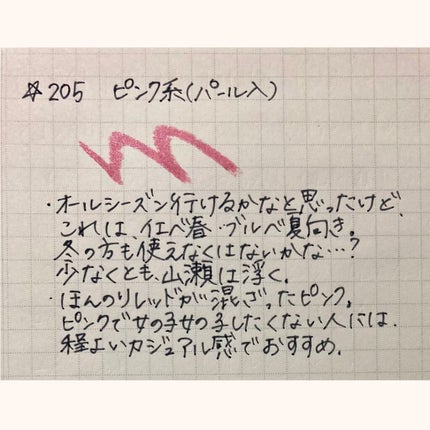 ☆205 ピンク系(パール入)
・オールシーズン行けるかなと思ったけど、
これは、イエベ春・ブルベ夏向き。
冬の方も使えなくはないかな…?
少なくとも、山瀬は浮く。
・ほんのりレッドが混ざったピンク。
ピンクで女の子女の子したくない人には、
程よいカジュアル感でおすすめ。